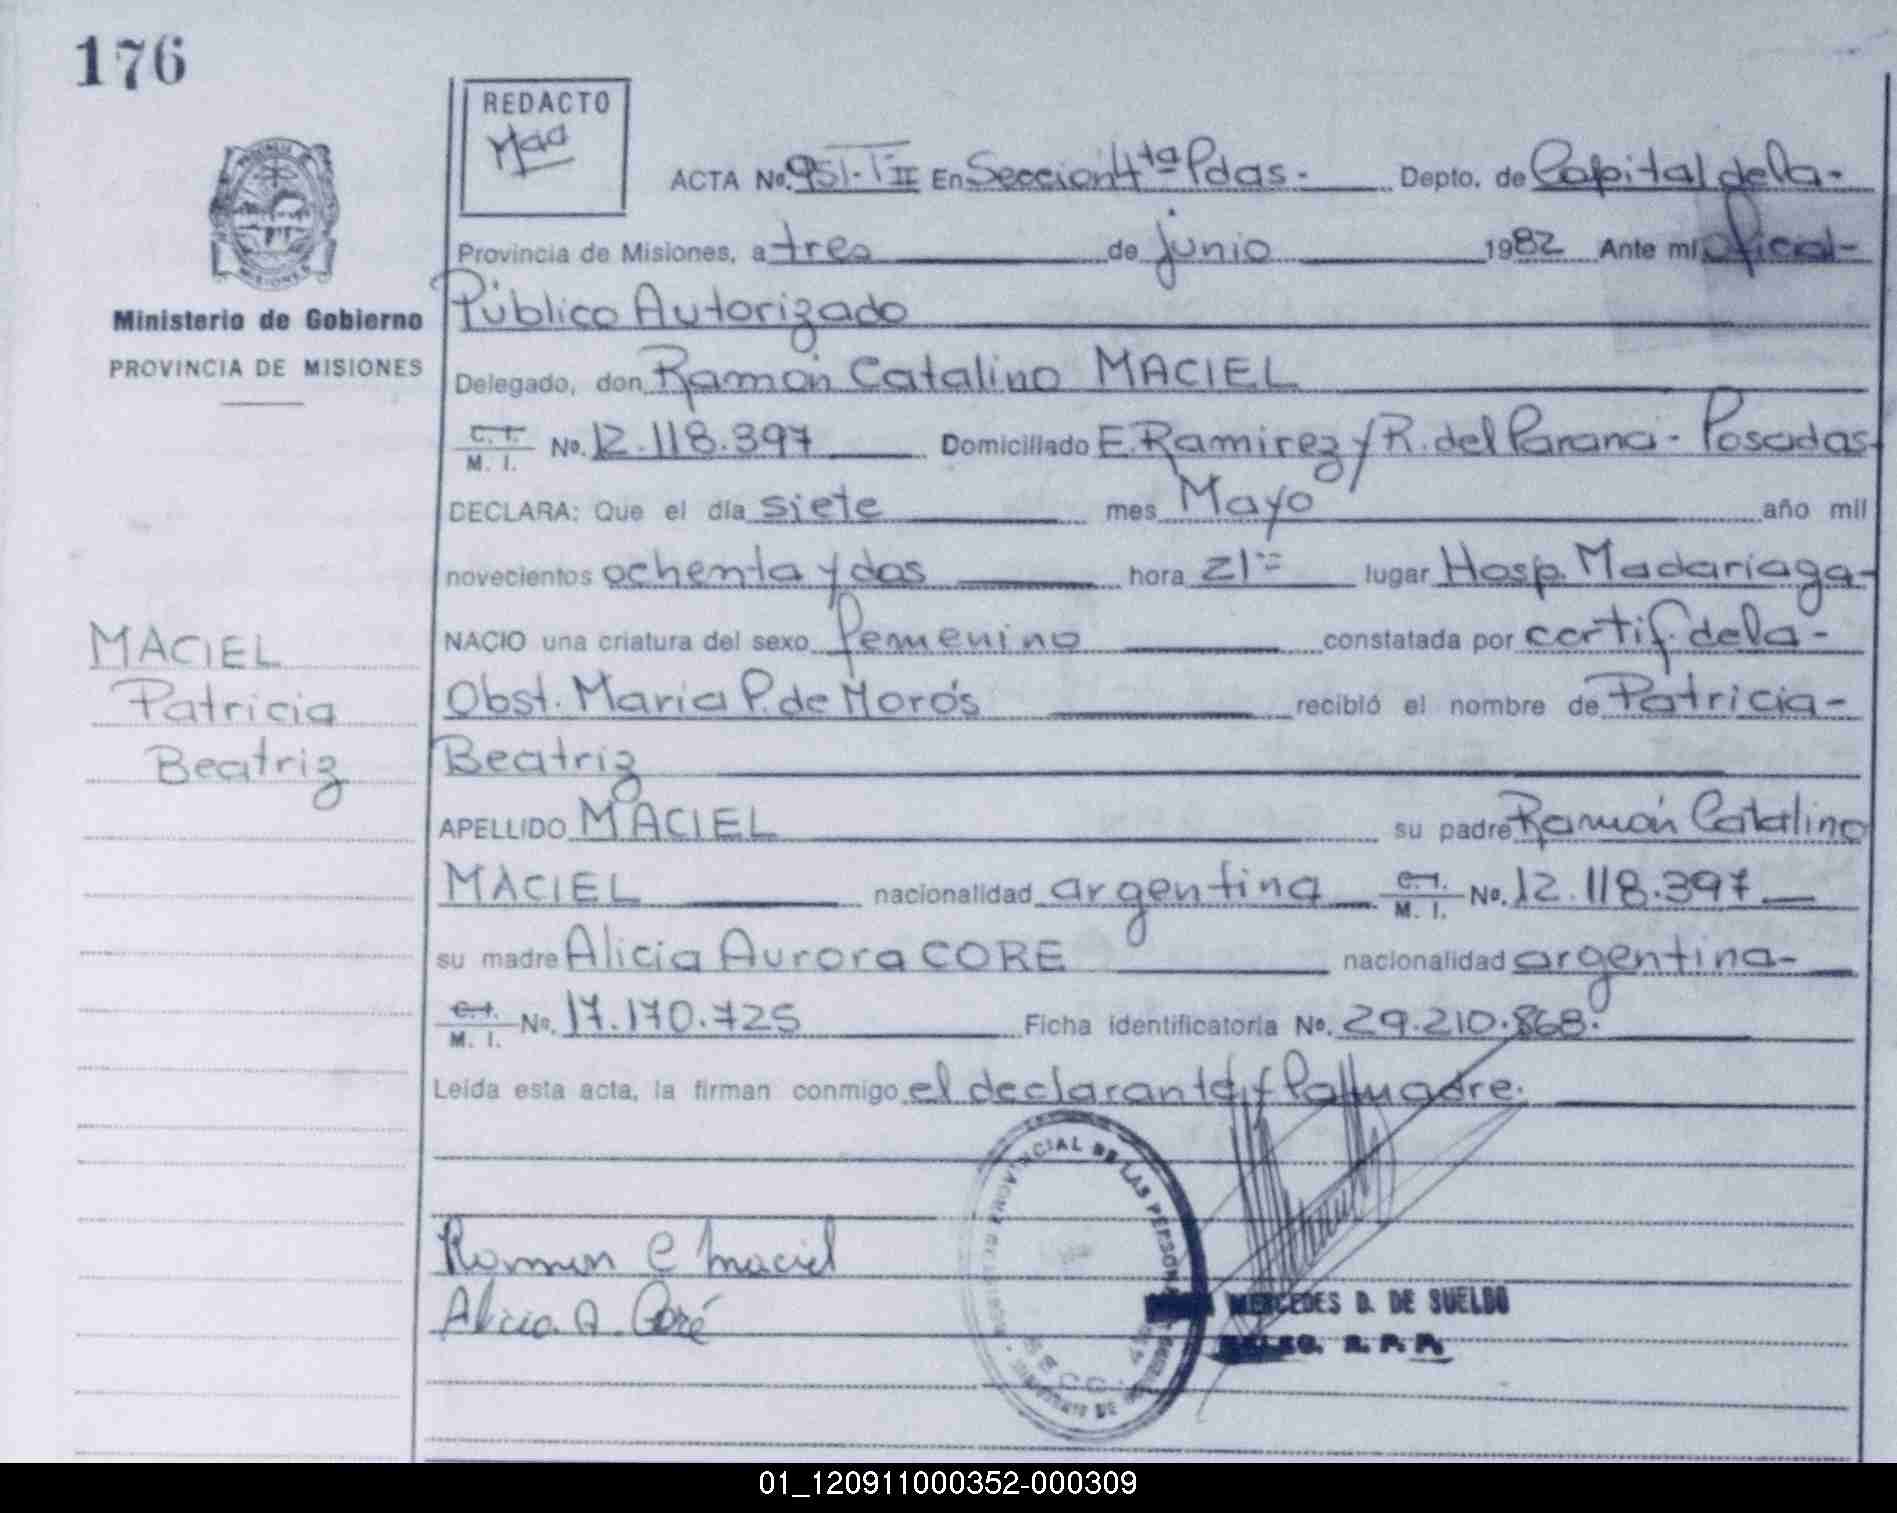 176
REDACTO
Maa
ACTA No. 951-TºII En Sección 4ta Pdas.- Depto. de Capital de la-
Provincia de Misiones, a tres de junio 1982 Ante mí Oficial-
Público Autorizado
Ministerio de Gobierno
PROVINCIA DE MISIONES
Delegado, don Ramón Catalino MACIEL
C. I. M. I. No. 12.118.397 Domiciliado E. Ramirez y R. del Paraná- Posadas-
DECLARA: Que el día siete mes Mayo año mil
novecientos ochenta y dos hora 21== lugar Hosp. Madariaga-
NACIO una criatura del sexo femenino constatada por certif. de la-
MACIEL
Patricia
Beatriz
Obst. Maria P. de Morós recibió el nombre de Patricia-
Beatriz
APELLIDO MACIEL su padre Ramón Catalino
MACIEL nacionalidad argentina C. I. M. I. No. 12.118.397
su madre Alicia Aurora CORE nacionalidad argentina-
C. I. M. I. No. 17.170.725 Ficha identificatoria No. 29.210.868.
Leída esta acta, la firman conmigo el declarante y la madre.
PROVINCIAL DE LAS PERSONAS
Ramon C Maciel
Alicia A. Coré
MERCEDES D. DE SUELDO
DELEG. R. P. P.
01_120911000352-000309